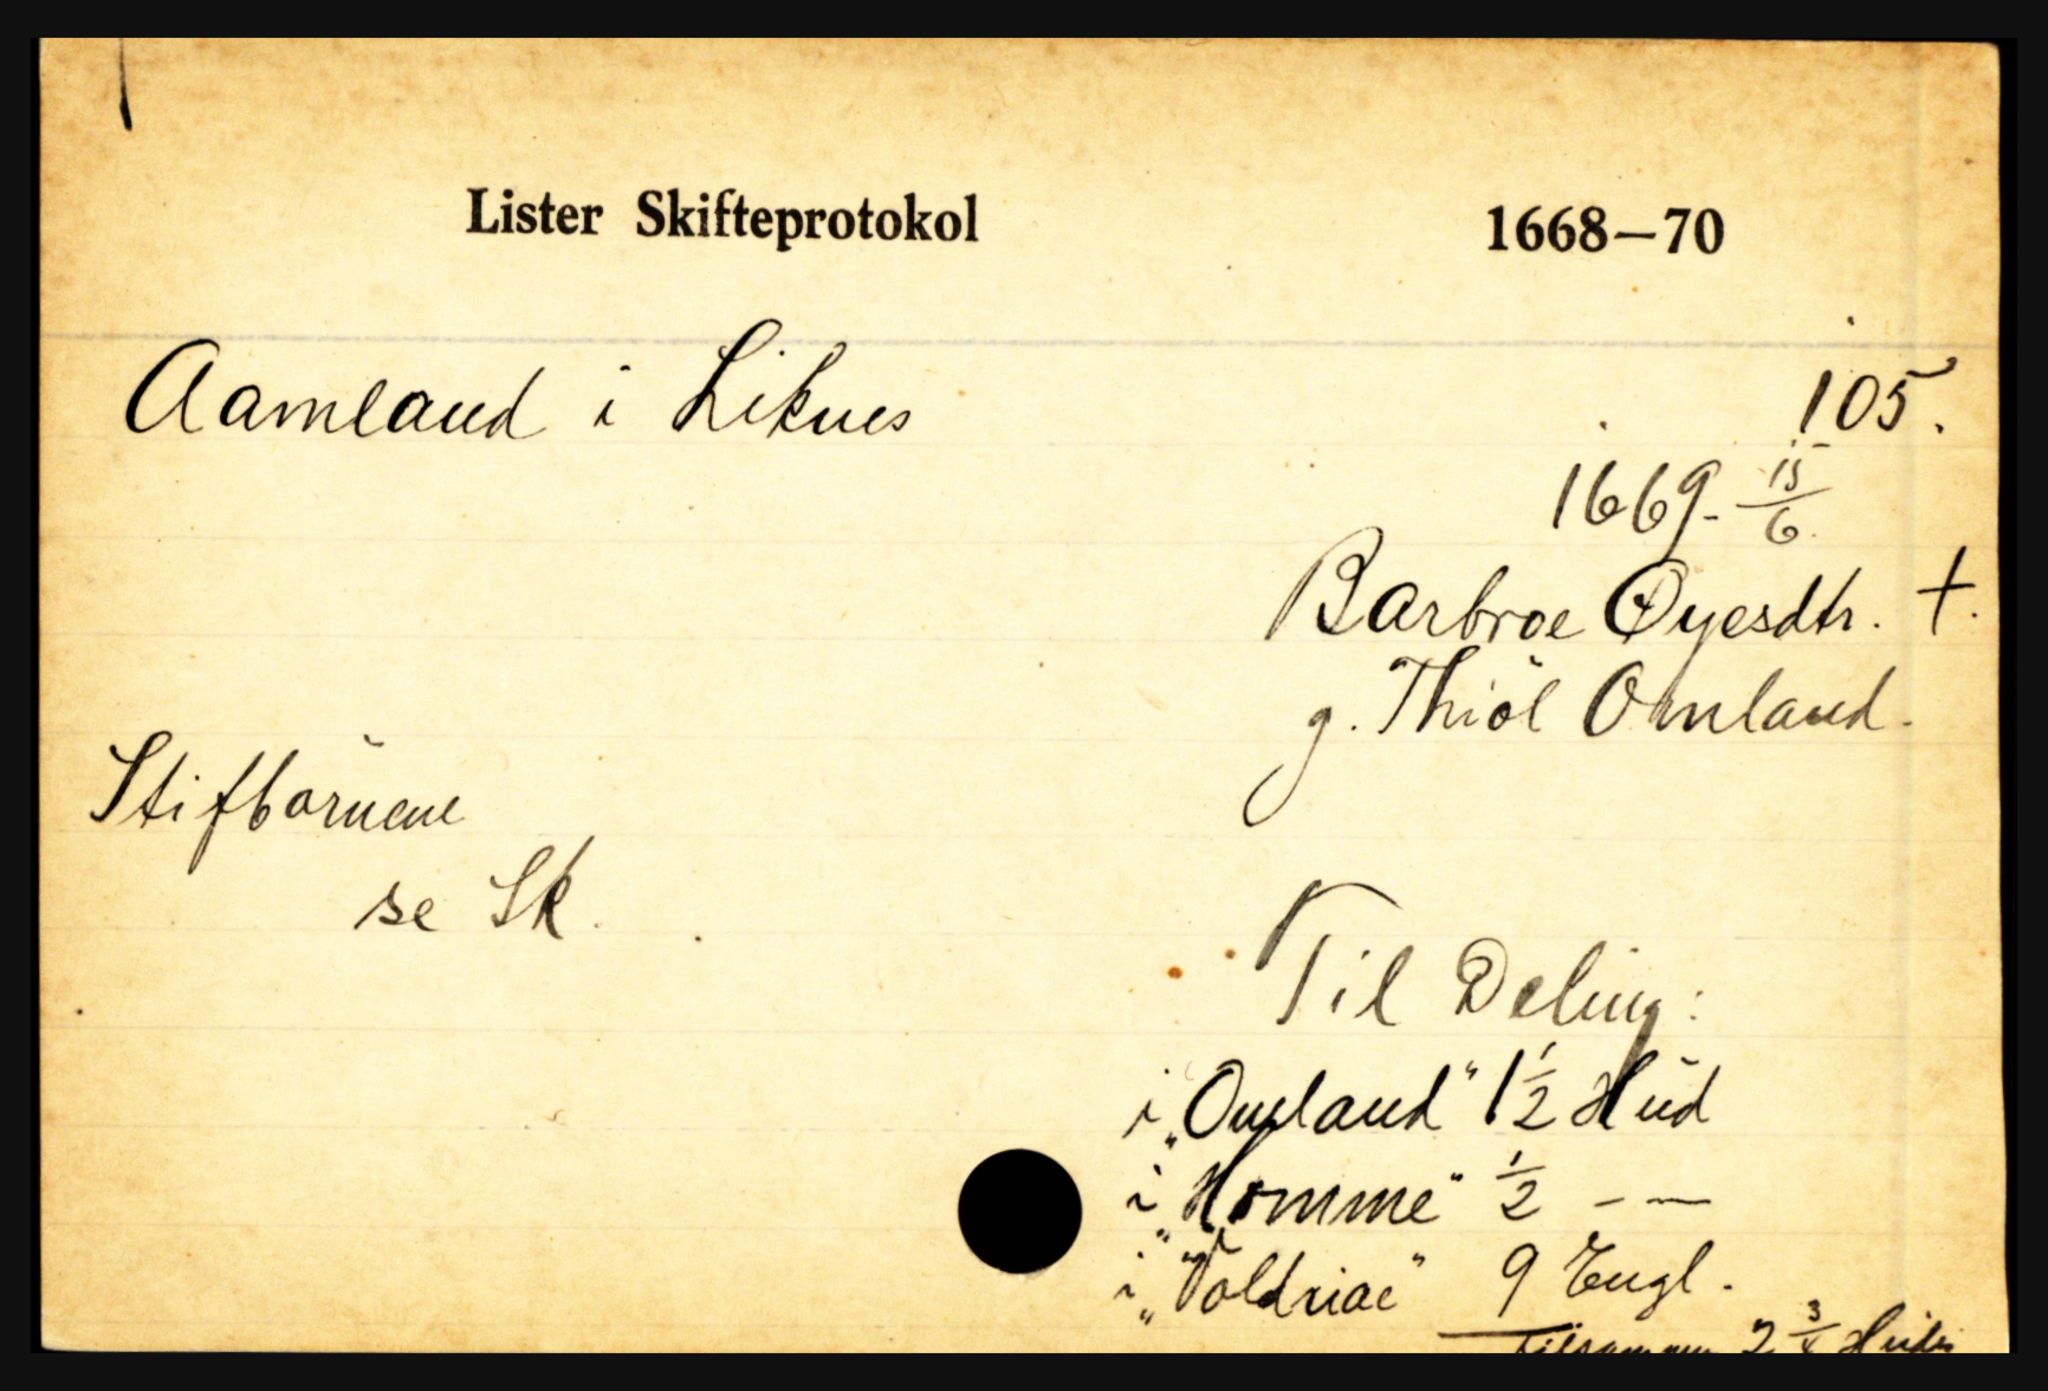 Lister Skifteprotokol 1668—70
Aamland i Liknes 105.
1669 - 15/6.
Barbroe Øyesdtr. +.
g. Thiöl Omland.
Stifbørnene
se Sk.
Til Deling:
i „Omland" 1 1/2 Hud
i „Homme" 1/2 - —
i „Voldriae" 9 Engl.
Tilsammen 2 3/4 Huder